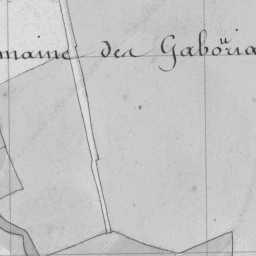 maine des Gaboria